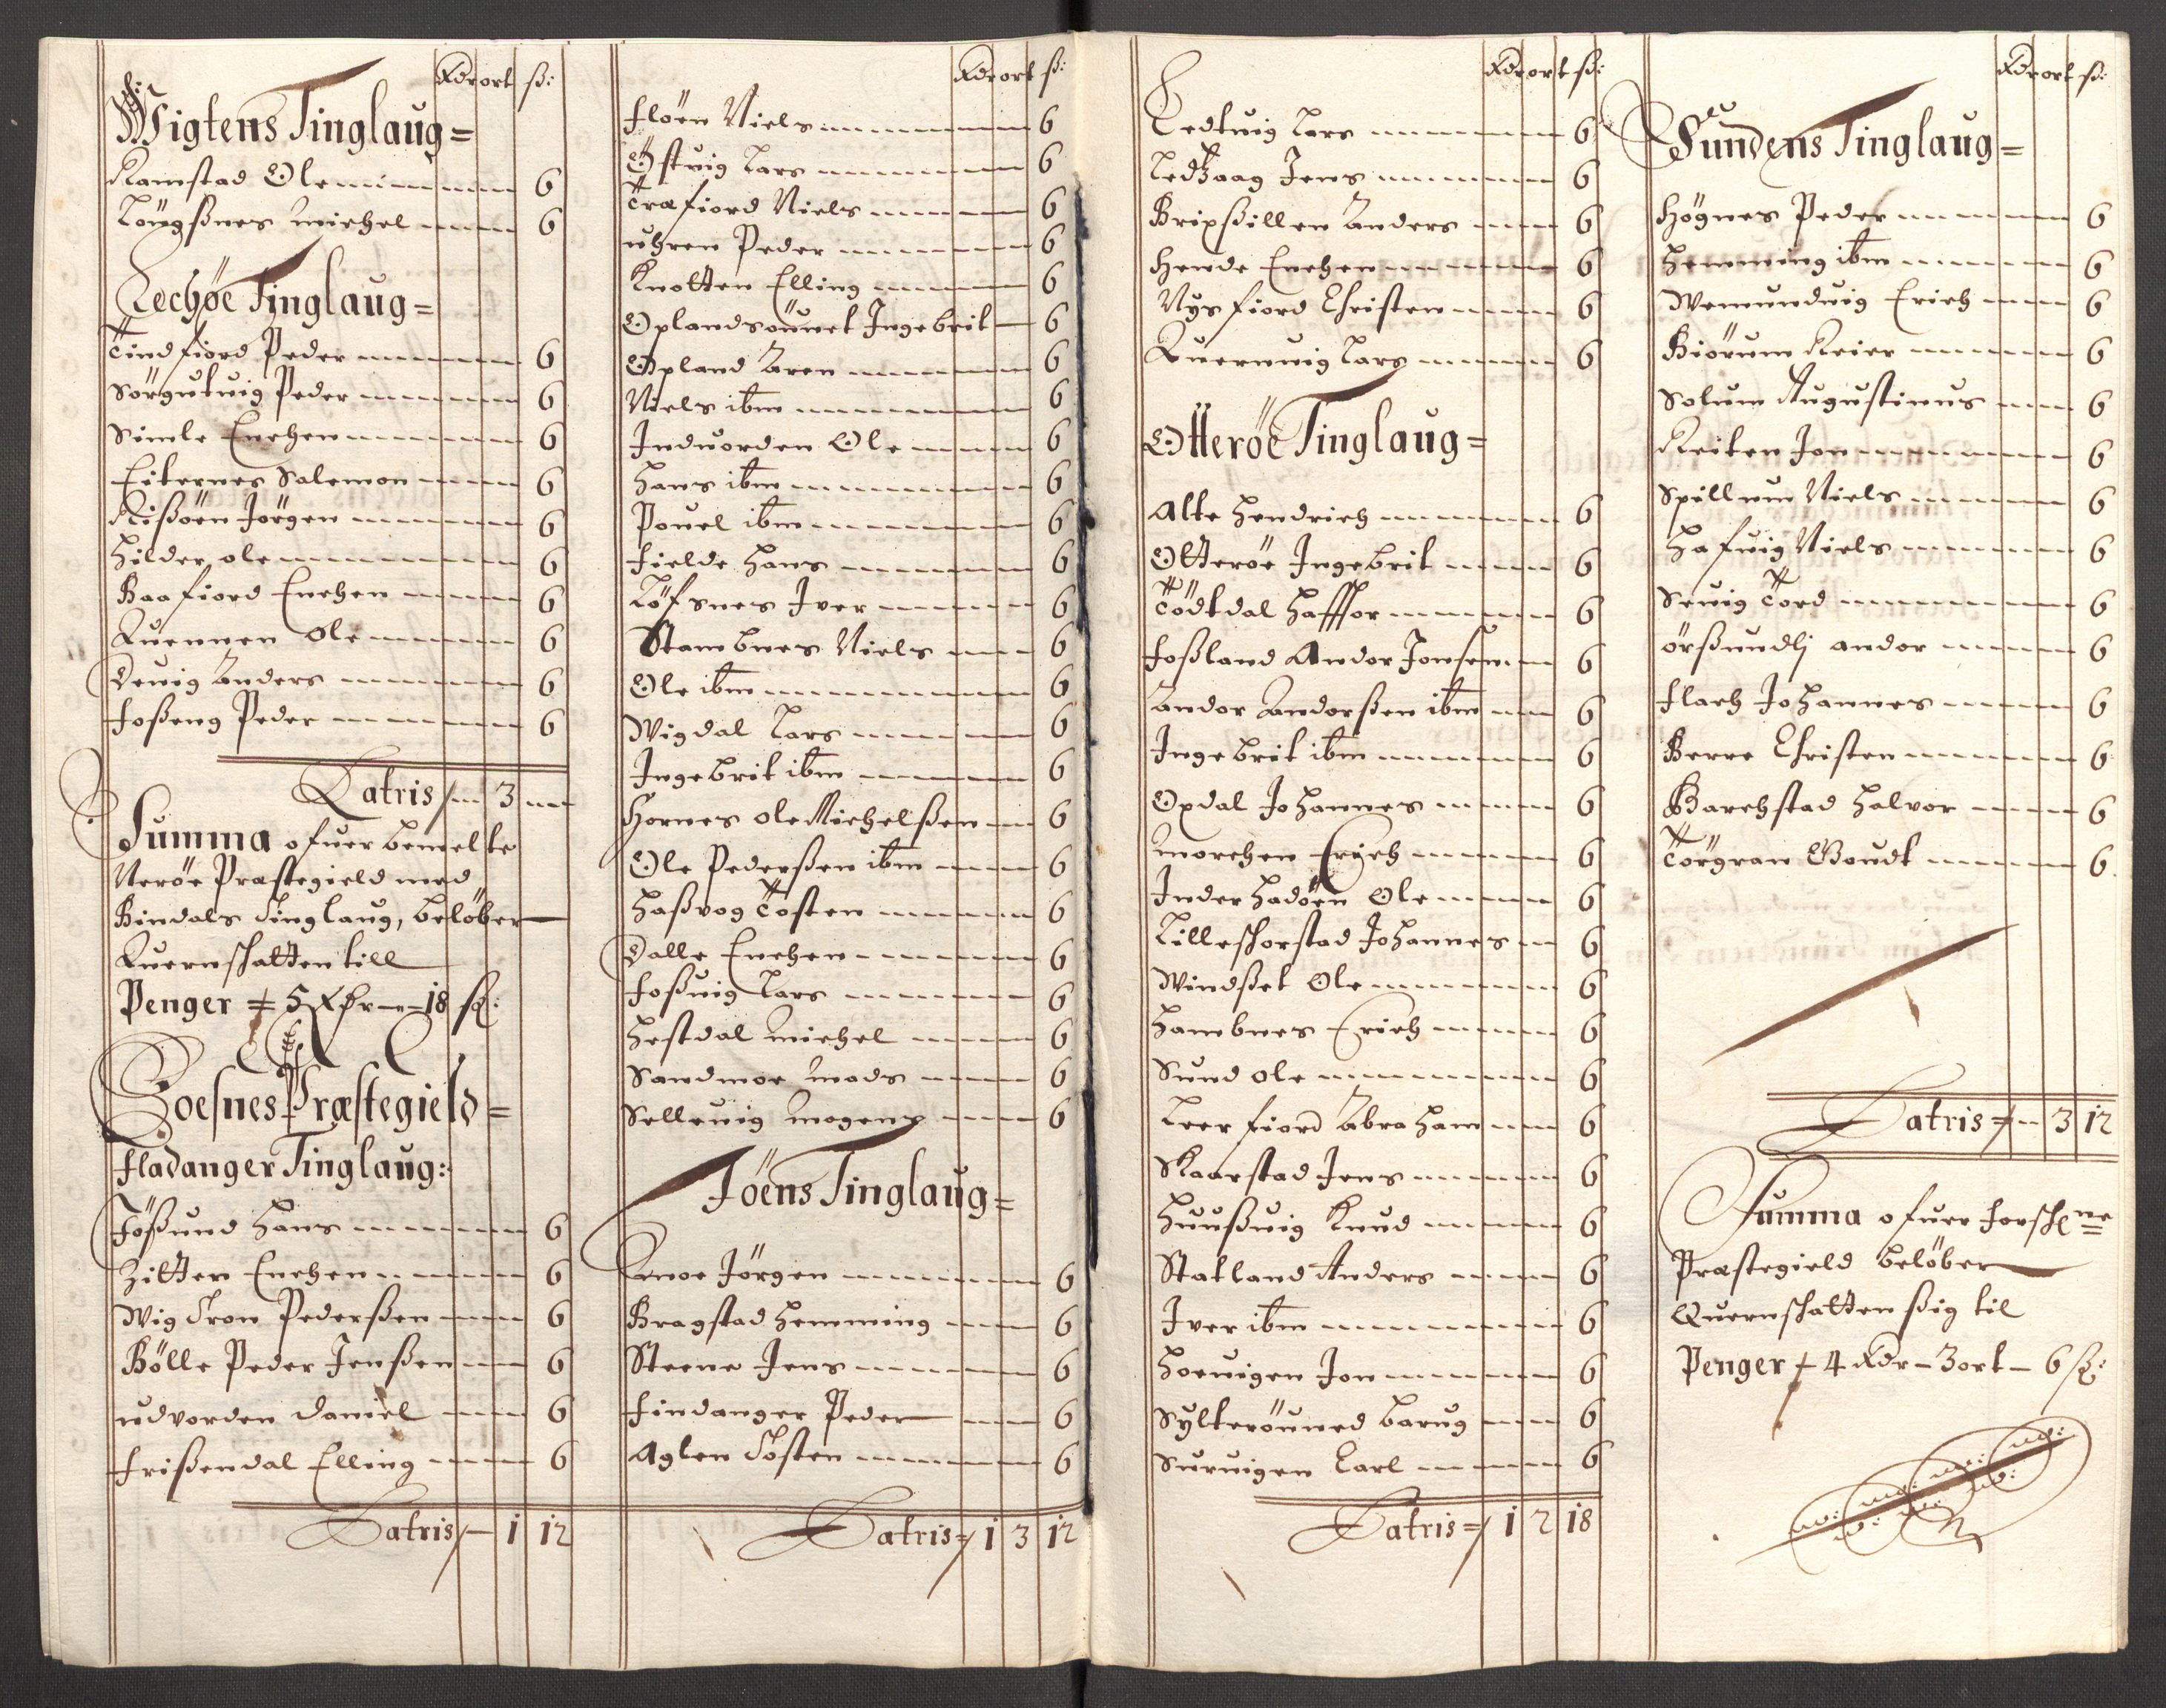 Rdr ort ß:
Wigtens Tinglaug =
Ramstad Ole 6
Löugßnes Michel 6
Lechøe Tinglaug =
Tindfiord Peder 6
Sörgutvig Peder 6
Simle Enchen 6
Eiternes Salemon 6
Rißöen Jörgen 6
Hilder ole 6
Baafiord Enchen 6
Quennen Ole 6
Devig Anders 6
Foßeng Peder 6
Latris 3
Summa ofuer bemelte
Nerøe Præstegield med
Bindals Tinglaug, beløber
Quernskatten till
Penger 5 Rdr - 18 ß:
Foesnes Præstegield =
Fladanger Tinglaug:
Jößund Hans 6
Zitter Enchen 6
Wig Tron Pederßen 6
Bölle Peder Jenßen 6
udvorden Daniel 6
Frißendal Elling 6
Latris 1 12
Rdr ort ß:
Flöen Niels 6
Östvig Lars 6
Træfiord Niels 6
uhren Peder 6
Knotten Elling 6
Oplandsöunet Ingebrit 6
Opland Aren 6
Niels ibm 6
Induorden Ole 6
Hans ibm 6
Pouel ibm 6
Fielde Hans 6
Löfsnes Iver 6
Stambnes Niels 6
Ole ibm 6
Wigdal Lars 6
Ingebrit ibm 6
Hornes Ole Michelßen 6
Ole Pederßen ibm 6
Haßvog Tosten 6
Dalle Enchen 6
Foßvig Lars 6
Hestdal Michel 6
Sandmoe Mads 6
Sellevig Mogens 6
Föens Tinglaug =
Amoe Jörgen 6
Bragstad Hemming 6
Steene Jens 6
Findanger Peder 6
Aglen Tosten 6
Latris 1 3 12
Rdr ort ß:
Ledtvig Lars 6
Ledhaag Jens 6
Bripßillen Anders 6
Hende Enchen 6
Nysfiord Christen 6
Quernuig Lars 6
Otterøe Tinglaug =
Alte Hendrich 6
Otterøe Ingebrit 6
Tödtdal Haffthor 6
Foßland Andor Jonsen 6
Andor Andorßen ibm 6
Ingebrit ibm 6
Opdal Johannes 6
Morchen Erich 6
Inderhadöen Ole 6
Lilleschorstad Johannes 6
Windßet Ole 6
Hambnes Erich 6
Sund ole 6
Leerfiord Abraham 6
Kaarstad Jens 6
Huußvig Knud 6
Statland Anders 6
Iver ibm 6
Hoevigen Jon 6
Sylteröuned Barug 6
Survigen Carl 6
Latris = 1 2 18
Rdr ort ß:
Sundens Tinglaug =
Högnes Peder 6
Hemming ibm 6
Wemundvig Erich 6
Biörum Reier 6
Solum Augustinus 6
Reiten Jon 6
Spillum Niels 6
Hafvig Niels 6
Sevig Tord 6
örßundlj andor 6
Flach Johannes 6
Berre Christen 6
Barchstad Halvor 6
Törgran Goudt 6
Latris = 3 12
Summa ofuer forschne
Præstegield beløber
Quernskatten ßig til
Penger 4 Rdr - 3 ort - 6 ß: